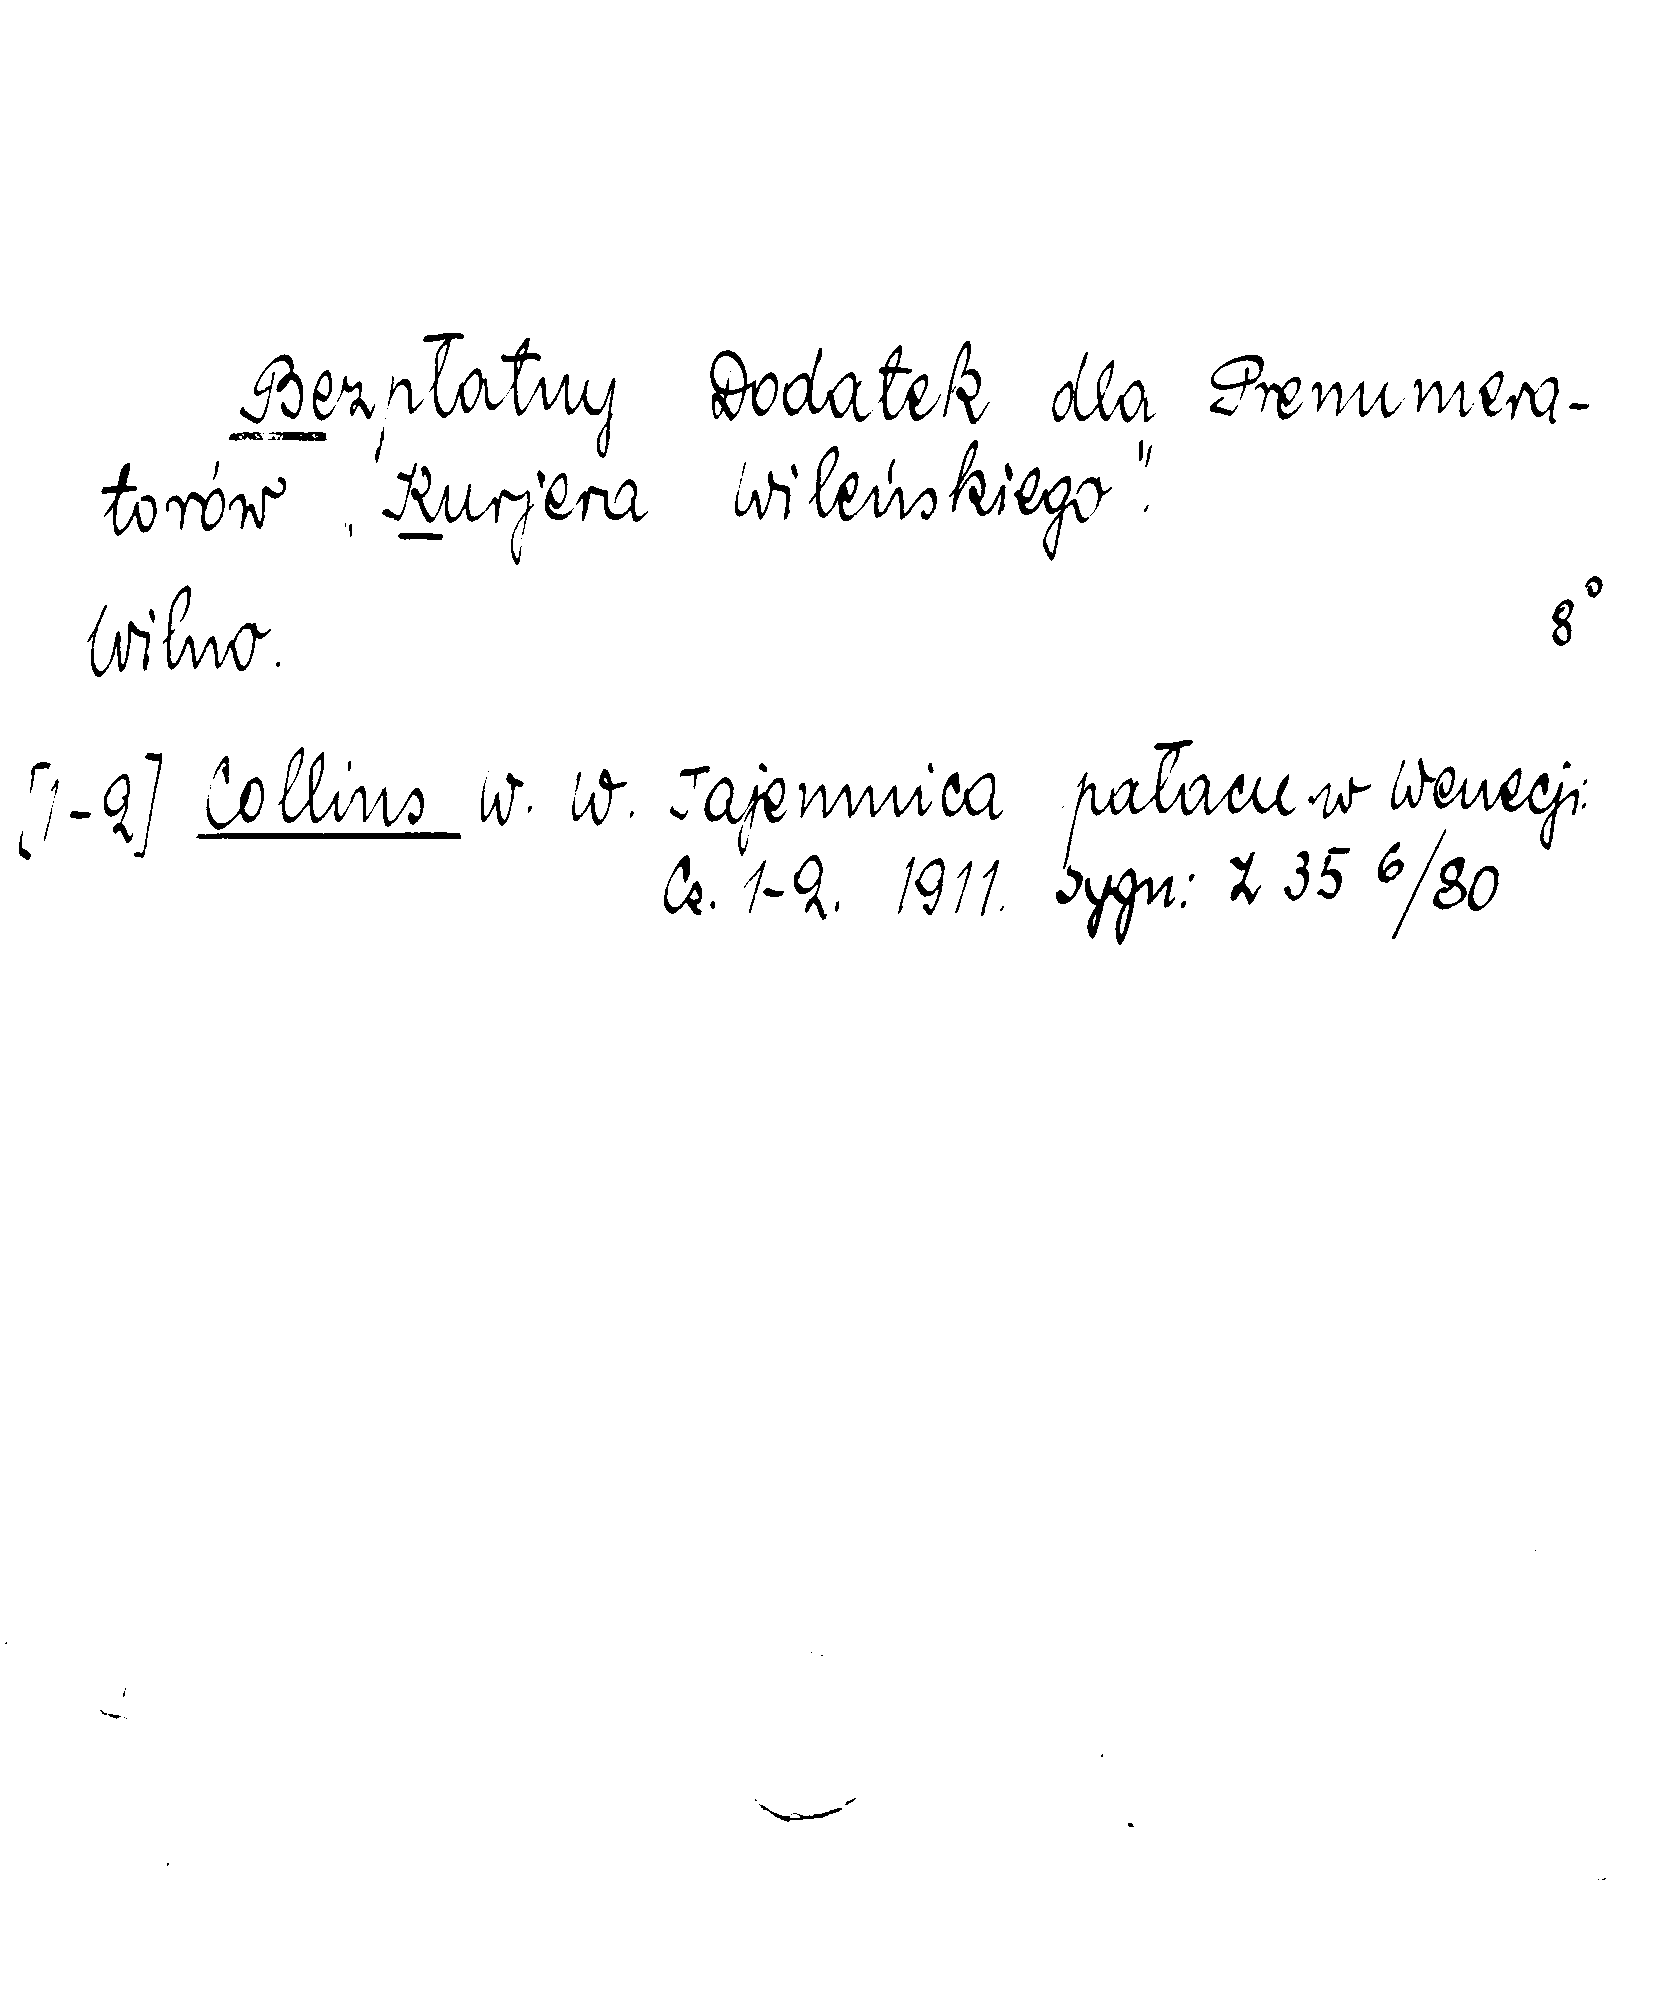 Bezpłatny Dodatek dla Prenumera-
torów „Kurjera Wileńskiego".
Wilno. 8°
[1-2] Collins W. W. Tajemnica pałacu w Wenecji.
Cz. 1-2. 1911. Sygn: Z 35 6/80